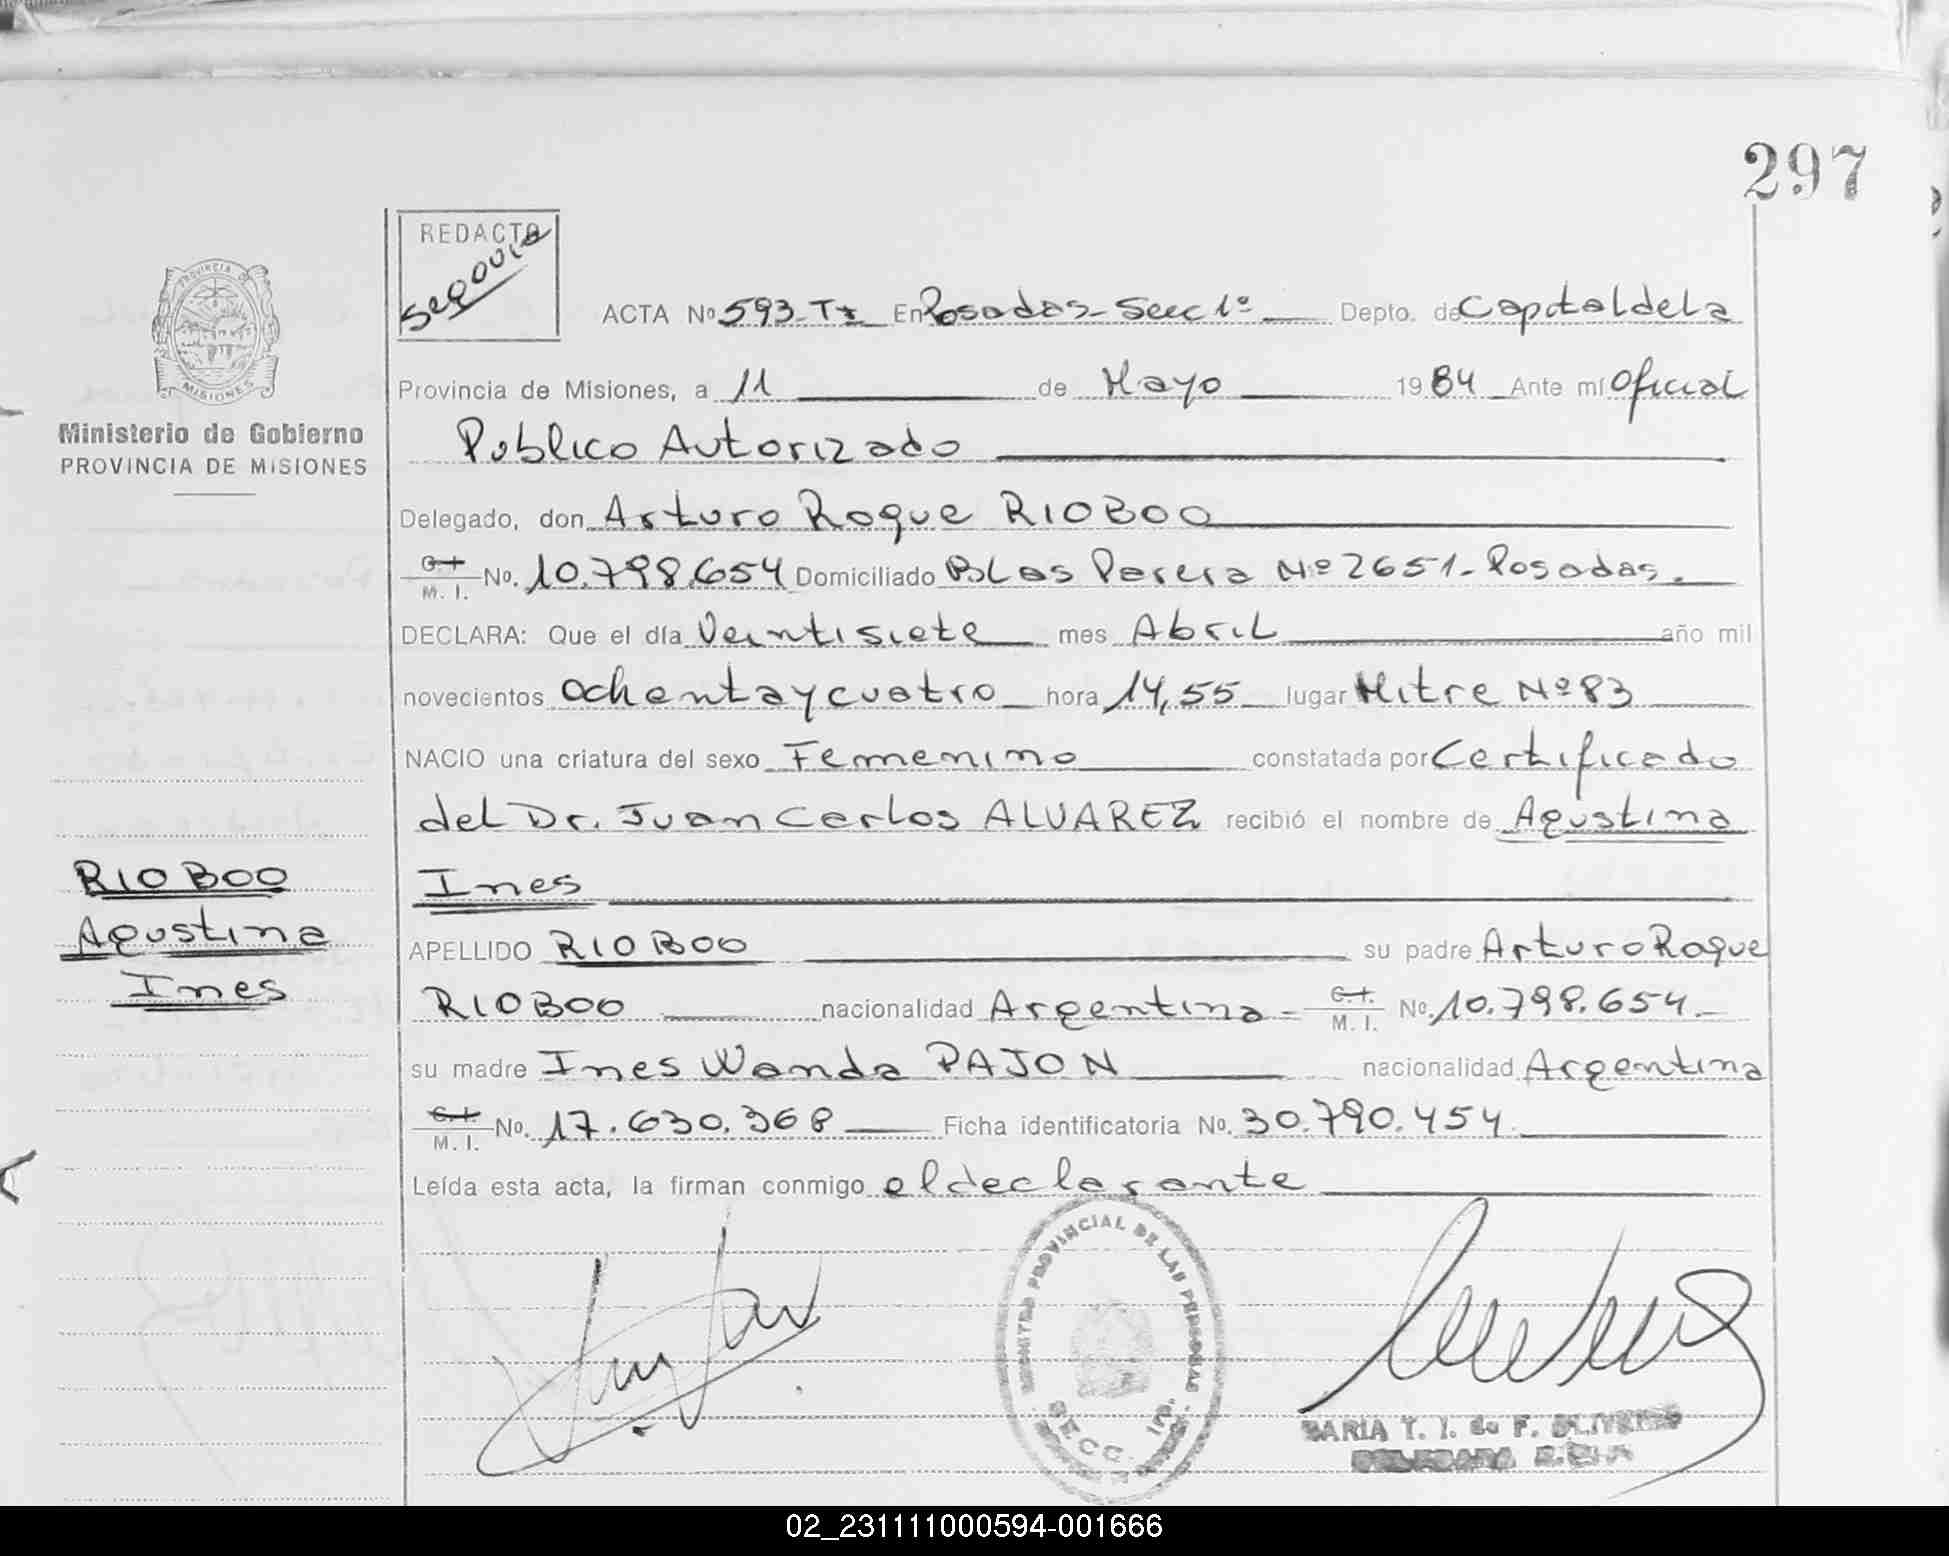 297
REDACTO
Segovia
PROVINCIA DE
MISIONES
Ministerio de Gobierno
PROVINCIA DE MISIONES
ACTA Nº 593-Tº En Posadas-Secc 1º Depto. de Capital de La
Provincia de Misiones, a 11 de Mayo 1984 Ante mí Oficial
Publico Autorizado
Delegado, don Arturo Roque RIOBOO
C.I. M. I. No. 10.798.654 Domiciliado Blas Parera Nº 2651-Posadas.
DECLARA: Que el día Veintisiete mes Abril año mil
novecientos ochenta y cuatro hora 14,55 lugar Mitre Nº 83
NACIO una criatura del sexo Femenino constatada por Certificado
del Dr. Juan Carlos ALVAREZ recibió el nombre de Agustina
Ines
APELLIDO RIOBOO su padre Arturo Roque
RIOBOO nacionalidad Argentina- C.I. M. I. No. 10.798.654.-
su madre Ines Wanda PAJON nacionalidad Argentina
C.I. M. I. No. 17.630.368 Ficha identificatoria No. 30.790.454.
Leída esta acta, la firman conmigo el declarante
RIOBOO
Agustina
Ines
REGISTRO PROVINCIAL DE LAS PERSONAS
SECC. 1ra.
MARIA T. I. de F. OLIVEIRA
DELEGADA
02_231111000594-001666